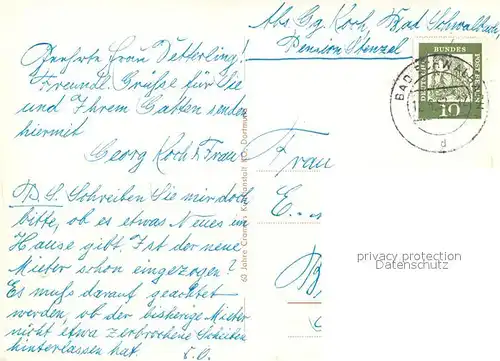 Abs. Gg. Koch, Bad Schwalbach,
Pension Stenzel
Verehrte Frau Vetterling!
Freundl. Grüsse für Sie
und Ihrem Gatten senden
hiermit
Georg Koch & Frau
P.S. Schreiben Sie mir doch
bitte, ob es etwas Neues im
Hause gibt. Ist der neue
Mieter schon eingezogen?
Es muss darauf geachtet
werden, ob der bisherige Mieter
nicht etwa zerbrochene Scheiben
hinterlassen hat.
60 Jahre Cramers Kunstanstalt KG., Dortmund
DEUTSCHE BUNDESPOST BERLIN
10
BAD SCHWALBACH
d
Frau
E.
privacy protection
Datenschutz